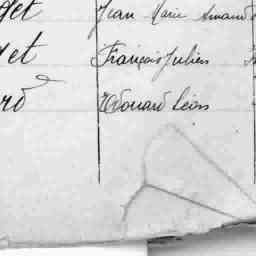 get Jean Marie Armand
get François Julien
ard Edouard Léon